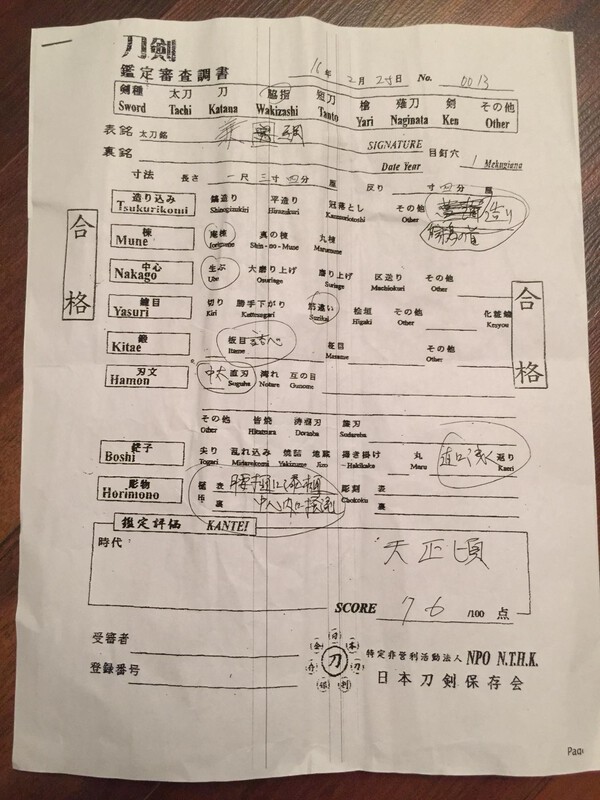 刀剣
鑑定審査調書
16年 2月 25日 No. 0013
剣種 太刀 刀 脇指 短刀 槍 薙刀 剣 その他
Sword Tachi Katana Wakizashi Tanto Yari Naginata Ken Other
表銘 太刀銘 兼 SIGNATURE 目釘穴 1 Mekugiana
裏銘 Date Year
寸法 長さ 一尺 三寸 四分 厘 反り 寸 四分 厘
造り込み 鎬造り 平造り 冠落とし その他 造り
Tsukurikomi Shinogizukiri Hirazukuri Kanmoriotoshi Other
棟 庵棟 真の棟 丸棟
Mune Iorimune Shin-no-Mune Marumune
中心 生ぶ 大磨り上げ 磨り上げ 区送り その他
Nakago Ubu Osuriage Suriage Machiokuri Other
鑢目 切り 勝手下がり 筋違い 桧垣 その他 化粧鑢
Yasuri Kiri Kattesagari Sujikai Higaki Other Kesyou
鍛 板目 柾目 その他
Kitae Itame Masame Other
刃文 中太 直刃 濤れ 互の目
Hamon Suguha Notare Gunome
その他 皆焼 涛瀾刃 簾刃
Other Hitatsura Doranba Sudareba
鋩子 尖り 乱れ込み 焼詰 地蔵 掃き掛け 丸 直に浅く 返り
Boshi Togari Midarekomi Yakizume Jizo Hakikake Maru Kaeri
彫物 樋 表 彫刻 表
Horimono Hi 裏 Chokoku 裏
合格
合格
鑑定評価 KANTEI
時代 天正頃
SCORE 76 /100 点
受審者
登録番号
刀
特定非営利活動法人 NPO N.T.H.K.
日本刀剣保存会